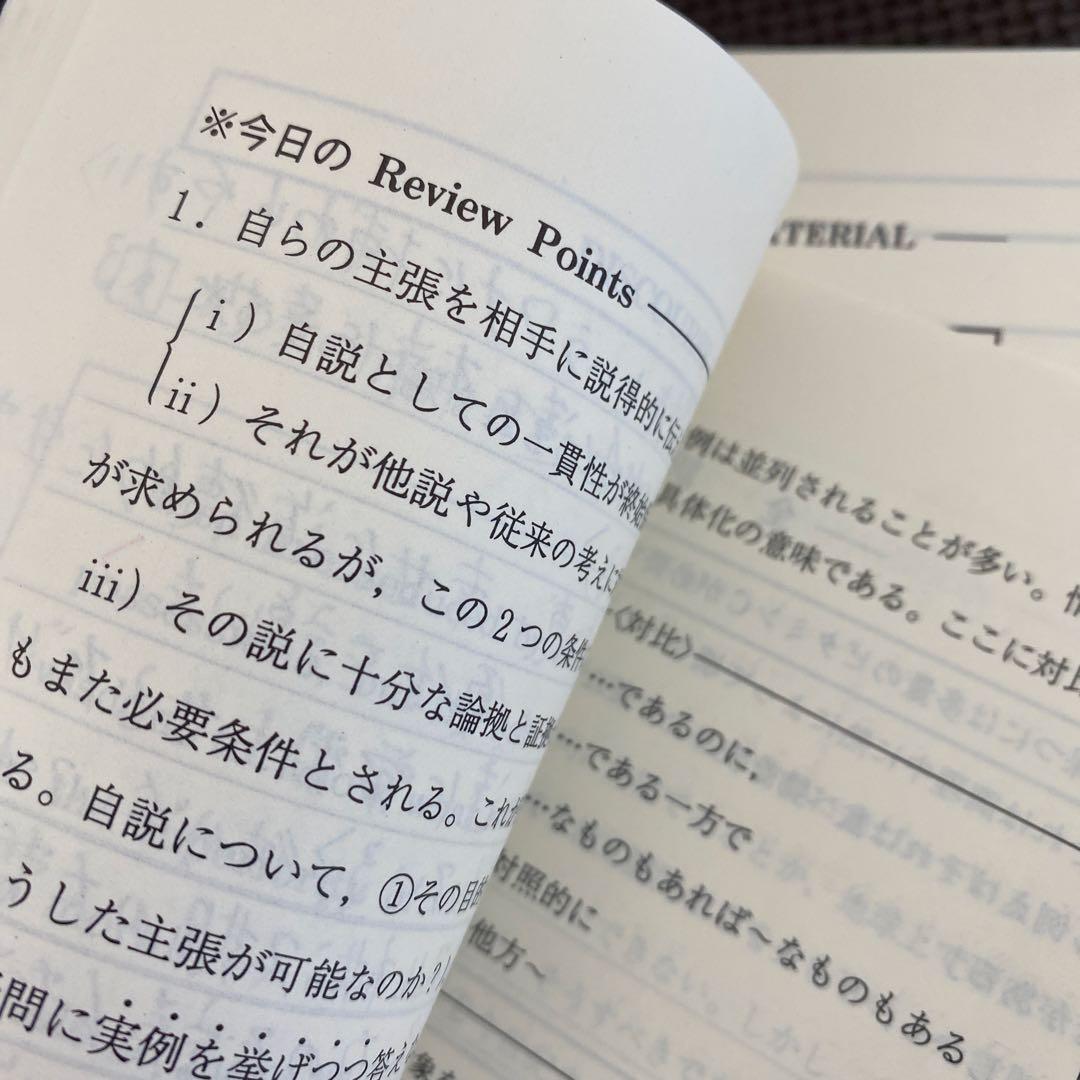 ※今日の Review Points
1．自らの主張を相手に説得的に伝
i）自説としての一貫性が終始
ii）それが他説や従来の考えに
が求められるが，この2つの条件
iii）その説に十分な論拠と証拠
もまた必要条件とされる。これだ
る。自説について，①その目的
うした主張が可能なのか？
問に実例を挙げつつ答え
TERIAL
例は並列されることが多い。
具体化の意味である。ここに対比
〈対比〉
…であるのに，
…である一方で
…なものもあれば～なものもある
対照的に
他方～